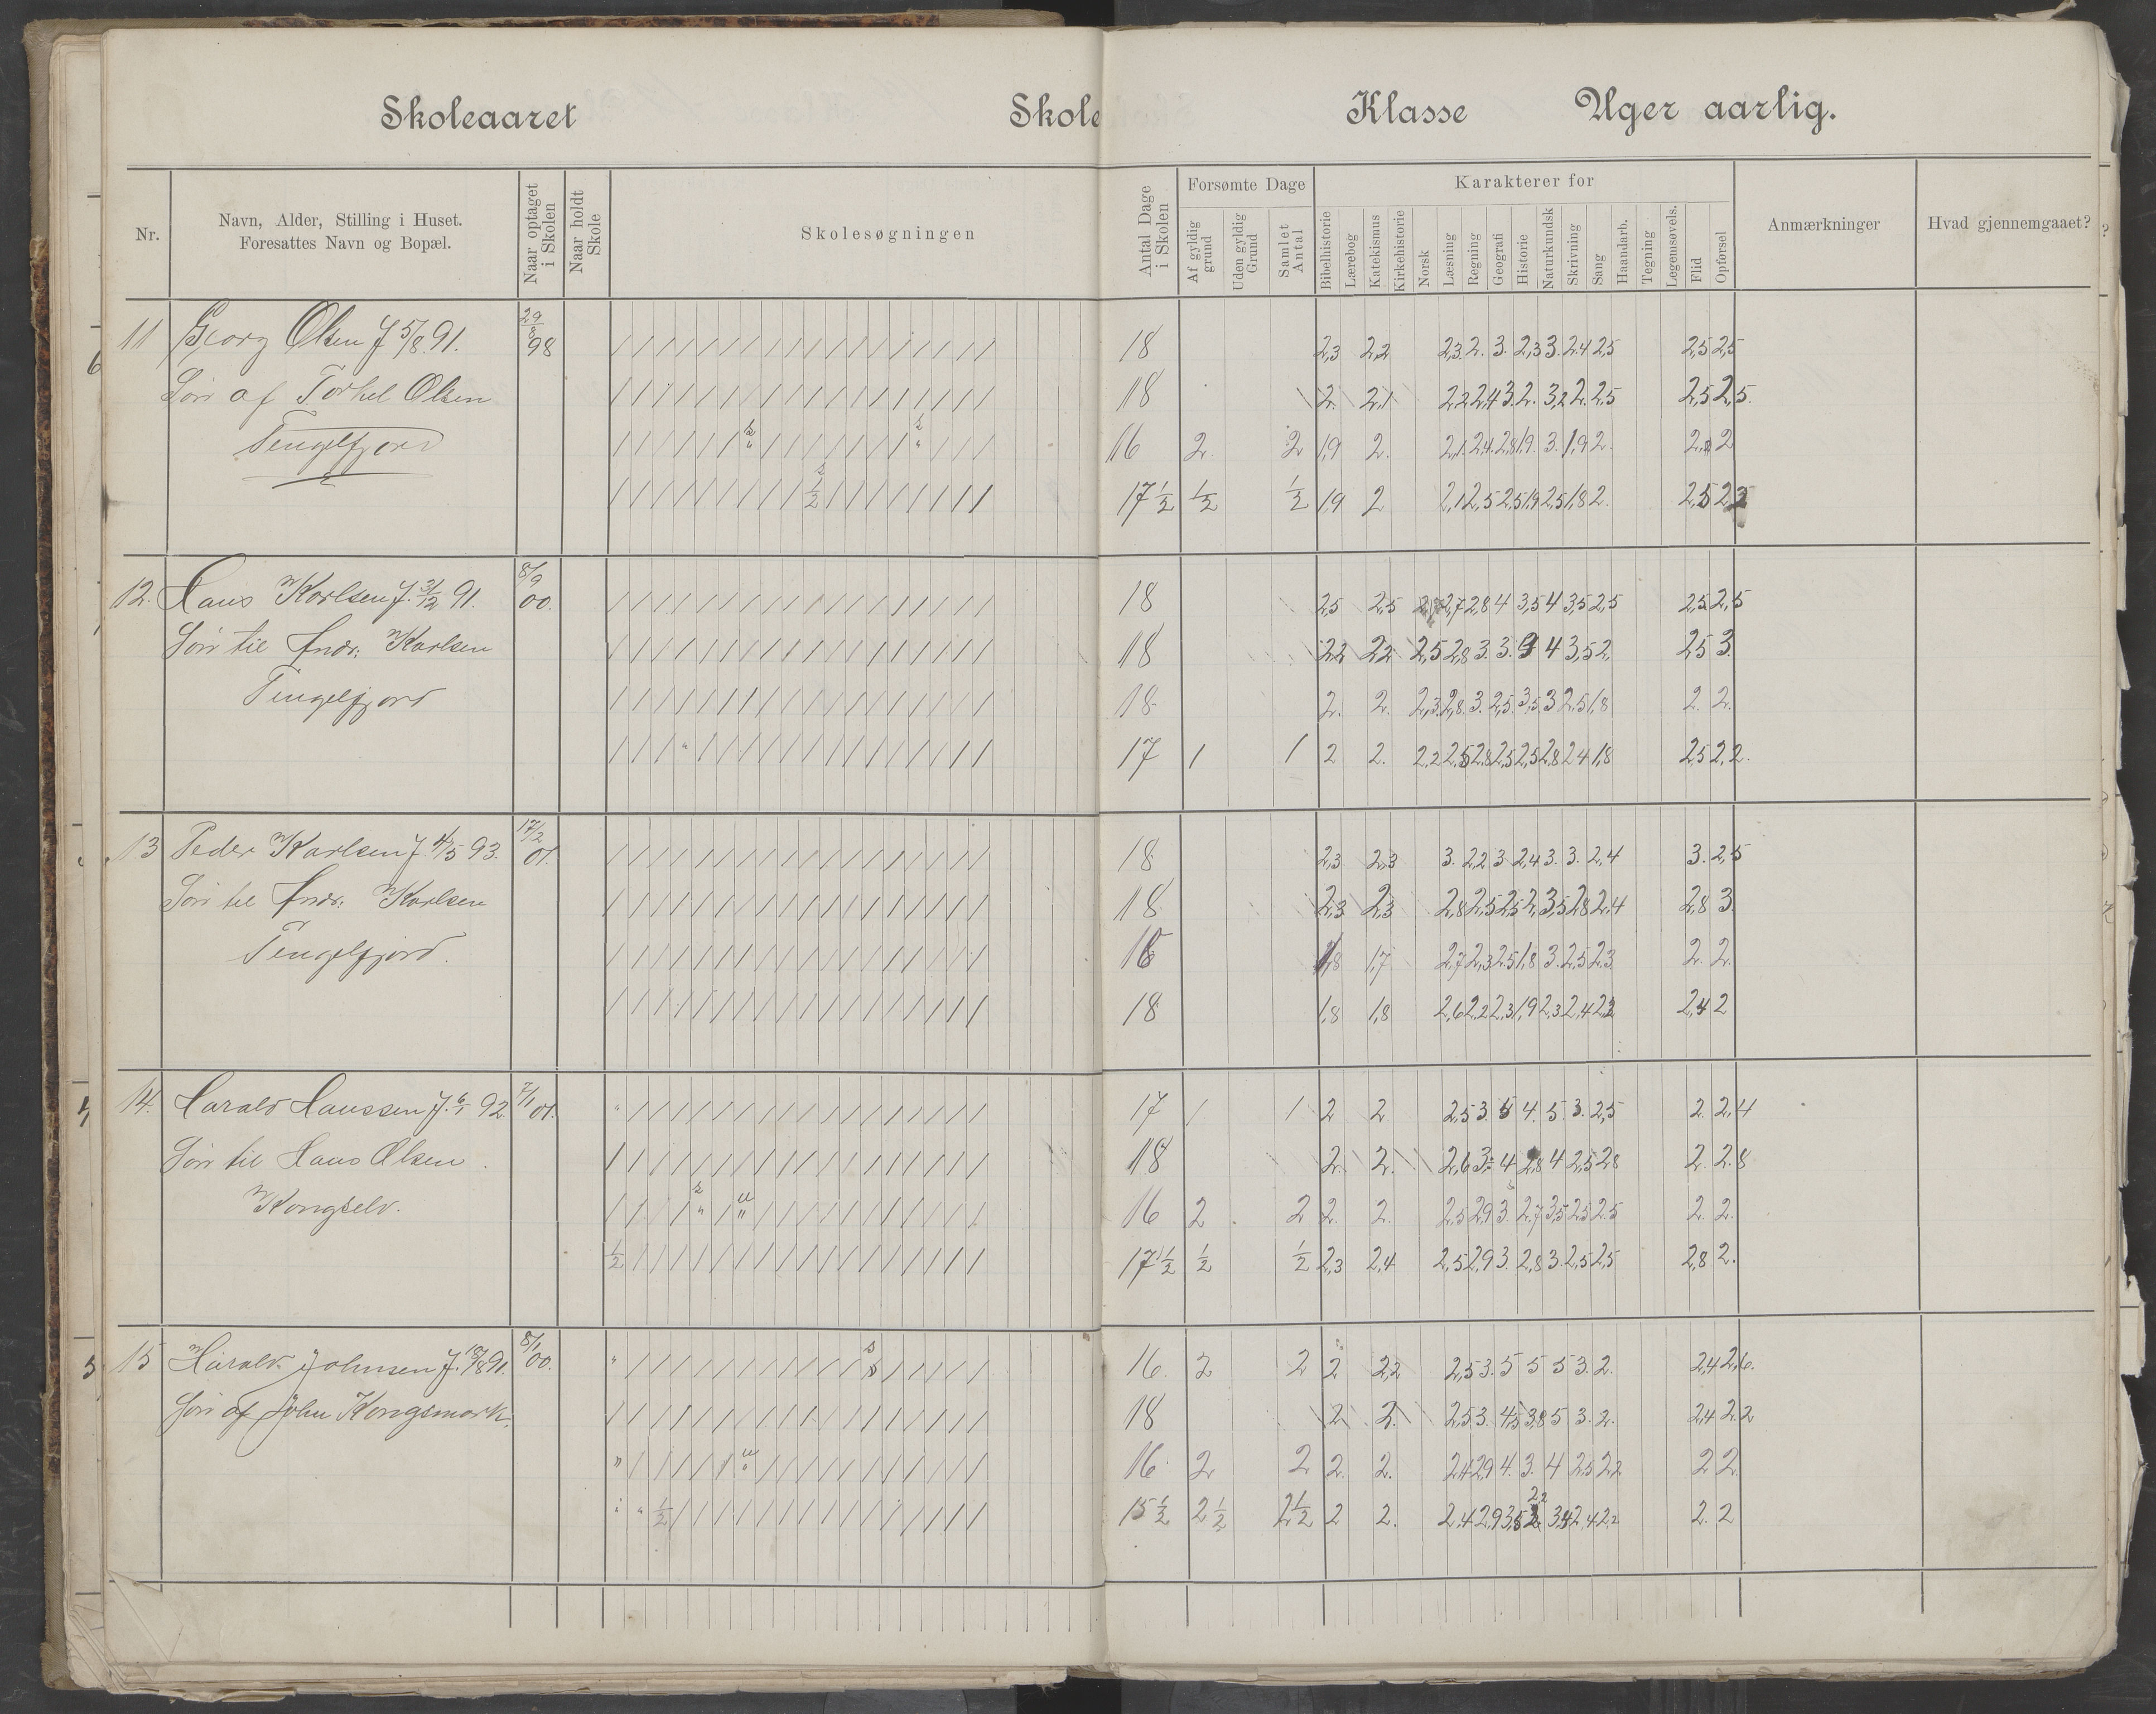 Skoleaaret Skole Klasse Uger aarlig.
Nr.
Navn, Alder, Stilling i Huset.
Foresattes Navn og Bopæl.
Naar optaget
i Skolen
Naar holdt
Skole
Skolesøgningen
Antal Dage
i Skolen
Forsømte Dage
Af gyldig
grund
Uden gyldig
Grund
Samlet
Antal
Karakterer for
Bibelhistorie
Lærebog
Katekismus
Kirkehistorie
Norsk
Læsning
Regning
Geografi
Historie
Naturkundsk
Skrivning
Sang
Haandarb.
Tegning
Legemsøvels.
Flid
Opførsel
Anmærkninger
Hvad gjennemgaaet?
11 Georg Olsen f 5/8 91. 29/8 98 18 2,3 2,2 2,3. 2. 3. 2,3 3. 2.4 2,5 2,5 2,5
Søn af Torkel Olsen 18 2. 2,1 2.2 2,4 3. 2. 3,2 2. 2.5 2,5 2,5.
Tengelfjord 16 2. 2 1,9 2. 2,1. 2.4. 2,8 1,9. 3. 1,9 2. 2
17 1/2 1/2 1/2 1,9 2 2,1 2,5 2,5 1,9 2,5 1,8 2. 2,5
12. Hans Karlsen f. 3/12 91. 8/9 00. 18 2,5 2,5 2,7 2,8 4 3,5 4 3,5 2,5 2,5 2,5
Søn til Andr. Karlsen 18 2.2 2.2 2,5 2,8 3. 3. 4 3,5 2, 2.5 3.
Tengelfjord 18 2. 2. 2,3. 2,8. 3. 2,5. 3,5 3 2.5 1,8 2. 2.
17 1 1 2 2. 2,2 2,5 2,8 2,5 2,5 2,8 2.4 1,8 2,5 2,2.
13 Peder Karlsen f. 4/5 93. 17/2 01. 18 2,3 2,3 3. 2,2 3 2,4 3. 3. 2,4 3. 2,5
Søn til Andr. Karlsen 18 2,3 2,3 2,8 2,5 2,5 2, 3,5 2,8 2,4 2,8 3.
Tengelfjord. 1,8 1,7 2,7 2,3 2.5 1,8 3. 2,5 2,3 2. 2.
18 1,8 1,8 2,6 2,2 2,3 1,9 2,3 2,4 2,4 2
14. Harald Hanssen f. 6/1 92. 7/1 01. 17 1 1 2 2 2,5 3. 5 4. 5. 3. 2,5 2. 2,4
Søn til Hans Olsen 18 2. 2. 2,6 3. 4 2,8 4 2,5 2.8 2. 2.8
Kongselv. 16 2 2 2. 2. 2,5 2,9 3. 2,7 3,5 2,5 2.5 2. 2.
17 1/2 1/2 1/2 2,3 2,4 2,5 2,9 3. 2,8 3. 2,5 2,5 2,8 2.
15 Harald Johnsen f. 91. 8/1 00. 16. 2 2 2 2,2 2,5 3. 5 5 5 3. 2. 2,4 2,6.
Søn af John Kongsmark. 18 2 2. 2,5 3. 4,5 3,8 5 3. 2. 2,4 2.2
16 2 2 2. 2. 2,4 2,9 4. 3. 4 2,5 2,2 2 2
15 1/2 2 1/2 2 1/2 2 2. 2,4 2,9 3,5 2,2 3,4 2,4 2,2 2. 2